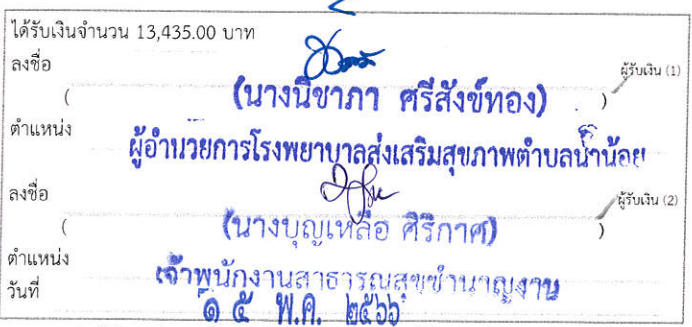 ได้รับเงินจำนวน 13,435.00 บาท
ลงชื่อ ผู้รับเงิน (1)
( (นางนิชาภา ศรีสังข์ทอง) )
ตำแหน่ง
ผู้อำนวยการโรงพยาบาลส่งเสริมสุขภาพตำบลน้ำน้อย
ลงชื่อ ผู้รับเงิน (2)
( (นางบุญเหลือ ศิริกาศ) )
ตำแหน่ง
เจ้าพนักงานสาธารณสุขชำนาญงาน
วันที่ ๑๕ พ.ค. ๒๕๖๖